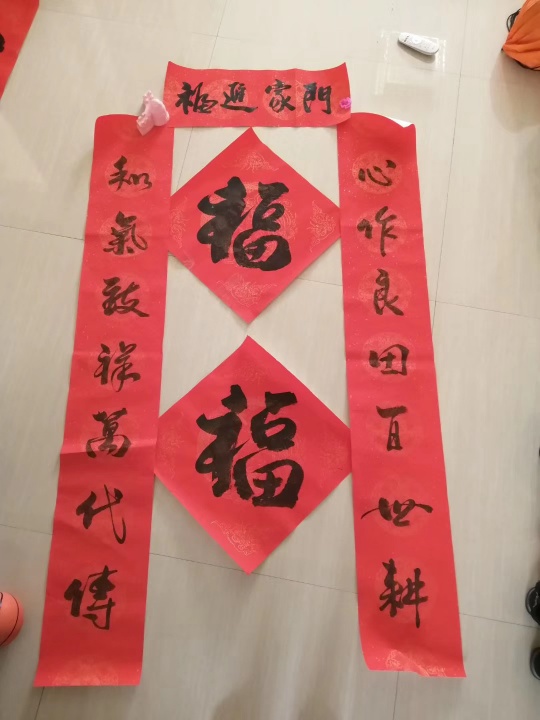 福進家門
心作良田百世耕
和氣致祥萬代傳
福
福